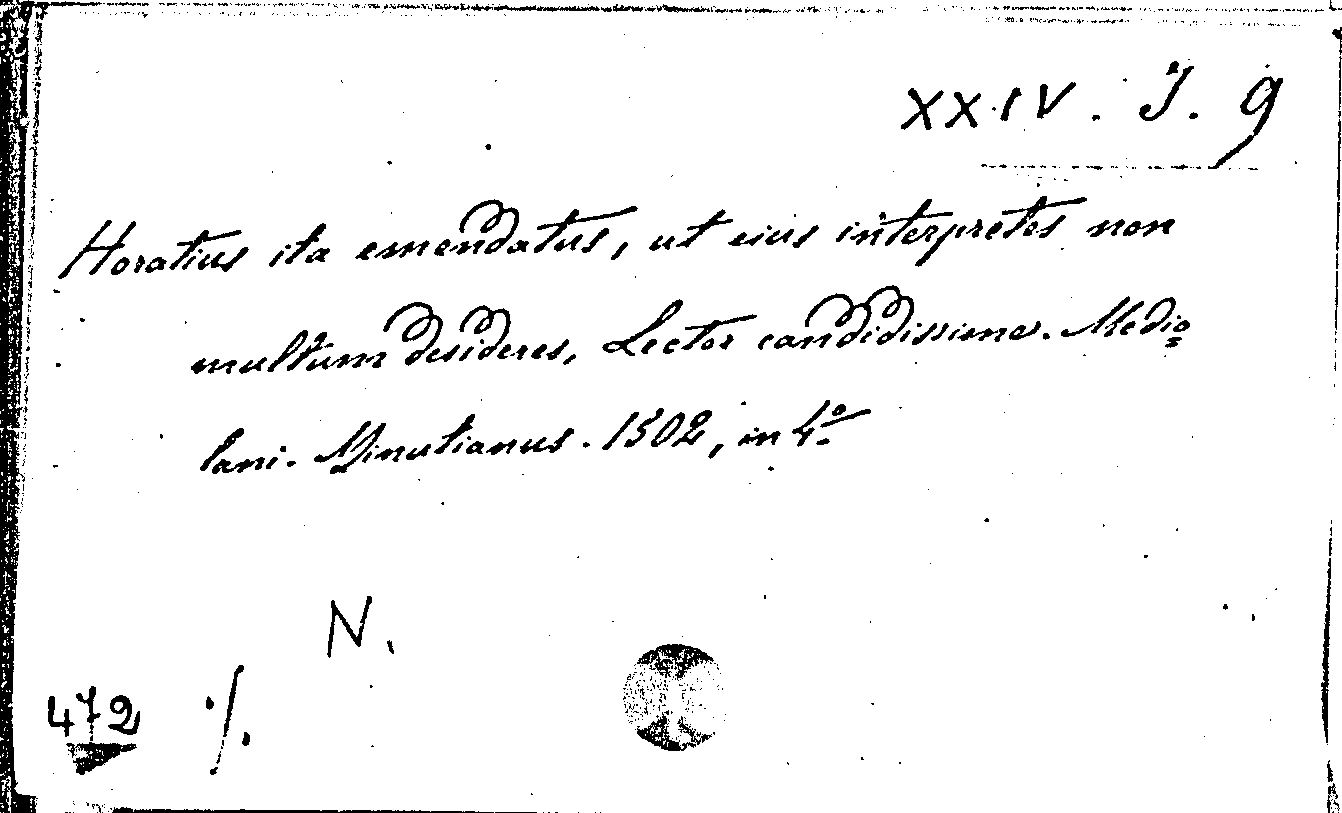 XXIV. J. 9
Horatius ita emendatus, ut eius interpretes non
multum desideres, Lector candidissime. Medio=
lani. Minutianus. 1502, in 4.º
N.
472 ./.